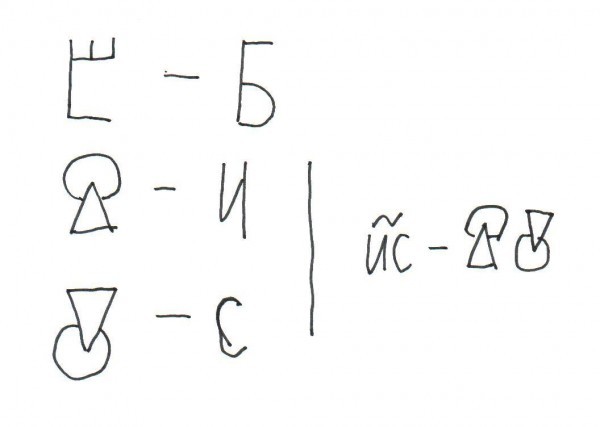 — Б
— И
— С
йс —